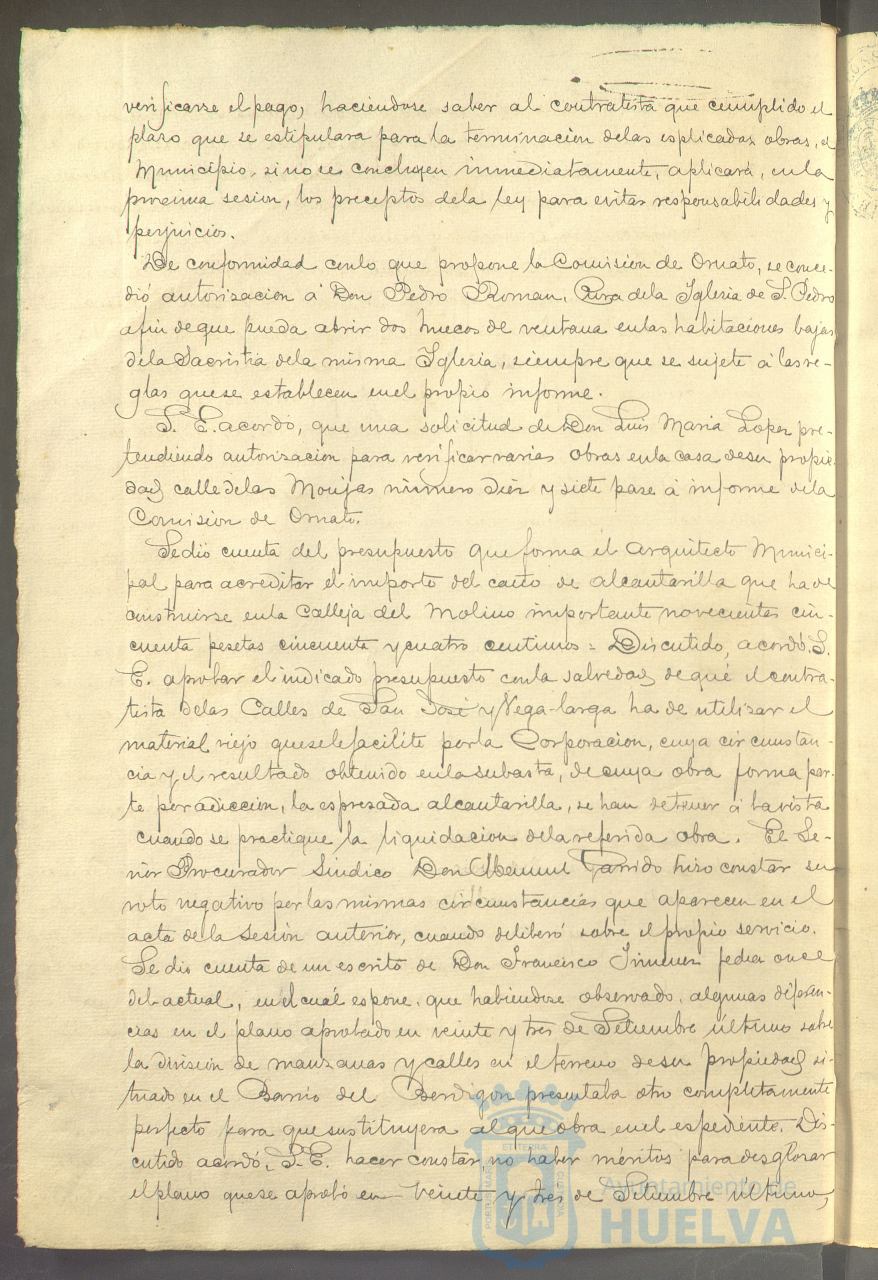 verificarse el pago, haciendose saber al contratista que cumplido el
plazo que se estipulara para la terminacion delas esplicadas obras, el
Municipio, si no se concluyen inmediatamente, aplicará, enla
procsima sesion, los preceptos dela ley para evitar responsabilidades y
perjuicios.
De conformidad conlo que propone la Comision de Ornato, se conce-
dió autorizacion á Don Pedro Roman, Cura dela Iglesia de S. Pedro
afin deque pueda abrir dos huecos de ventana enlas habitaciones bajas
dela Sacristia dela misma Iglesia, siempre que se sujete á las re-
glas quese establecen enel propio informe.
S. E. acordó, que una solicitud de Don Luis Maria Lopez pre-
tendiendo autorizacion para verificar varias obras enla casa desu propie-
dad calle delas Monjas número diez y siete pase á informe dela
Comision de Ornato.
Se dió cuenta del presupuesto que forma el Arquitecto Munici-
pal para acreditar el importe del caño de alcantarilla que ha de
construirse enla Calleja del Molino importante novecientas cin-
cuenta pesetas cincuenta y cuatro centimos = Discutido, acordó S.
E. aprobar el indicado presupuesto conla salvedad de que el contra-
tista delas Calles de San José y Vega-larga ha de utilizar el
material viejo quesele facilite porla Corporacion, cuya circunstan-
cia y el resultado obtenido enla subasta, de cuya obra forma par-
te por adiccion, la espresada alcantarilla, se han de tener á la vista
cuando se practique la liquidacion dela referida obra. El Se-
ñor Procurador Sindico Don Manuel Garrido hizo constar su
voto negativo por las mismas circunstancias que aparecen en el
acta de la sesion anterior, cuando deliberó sobre el propio servicio.
Se dió cuenta de un escrito de Don Francisco Jimenez fecha once
del actual, enel cual espone, que habiendose observado algunas diferen-
cias en el plano aprobado en veinte y tres de Setiembre último sobre
la división de manzanas y calles en el terreno desu propiedad si-
tuado en el Barrio del Berdigon presentaba otro completamente
perfecto para que sustituyera al que obra enel espediente. Dis-
cutido acordó, S. E. hacer constar no haber méritos para desglosar
el plano quese aprobó en veinte y tres de Setiembre último,
Ayuntamiento de
HUELVA